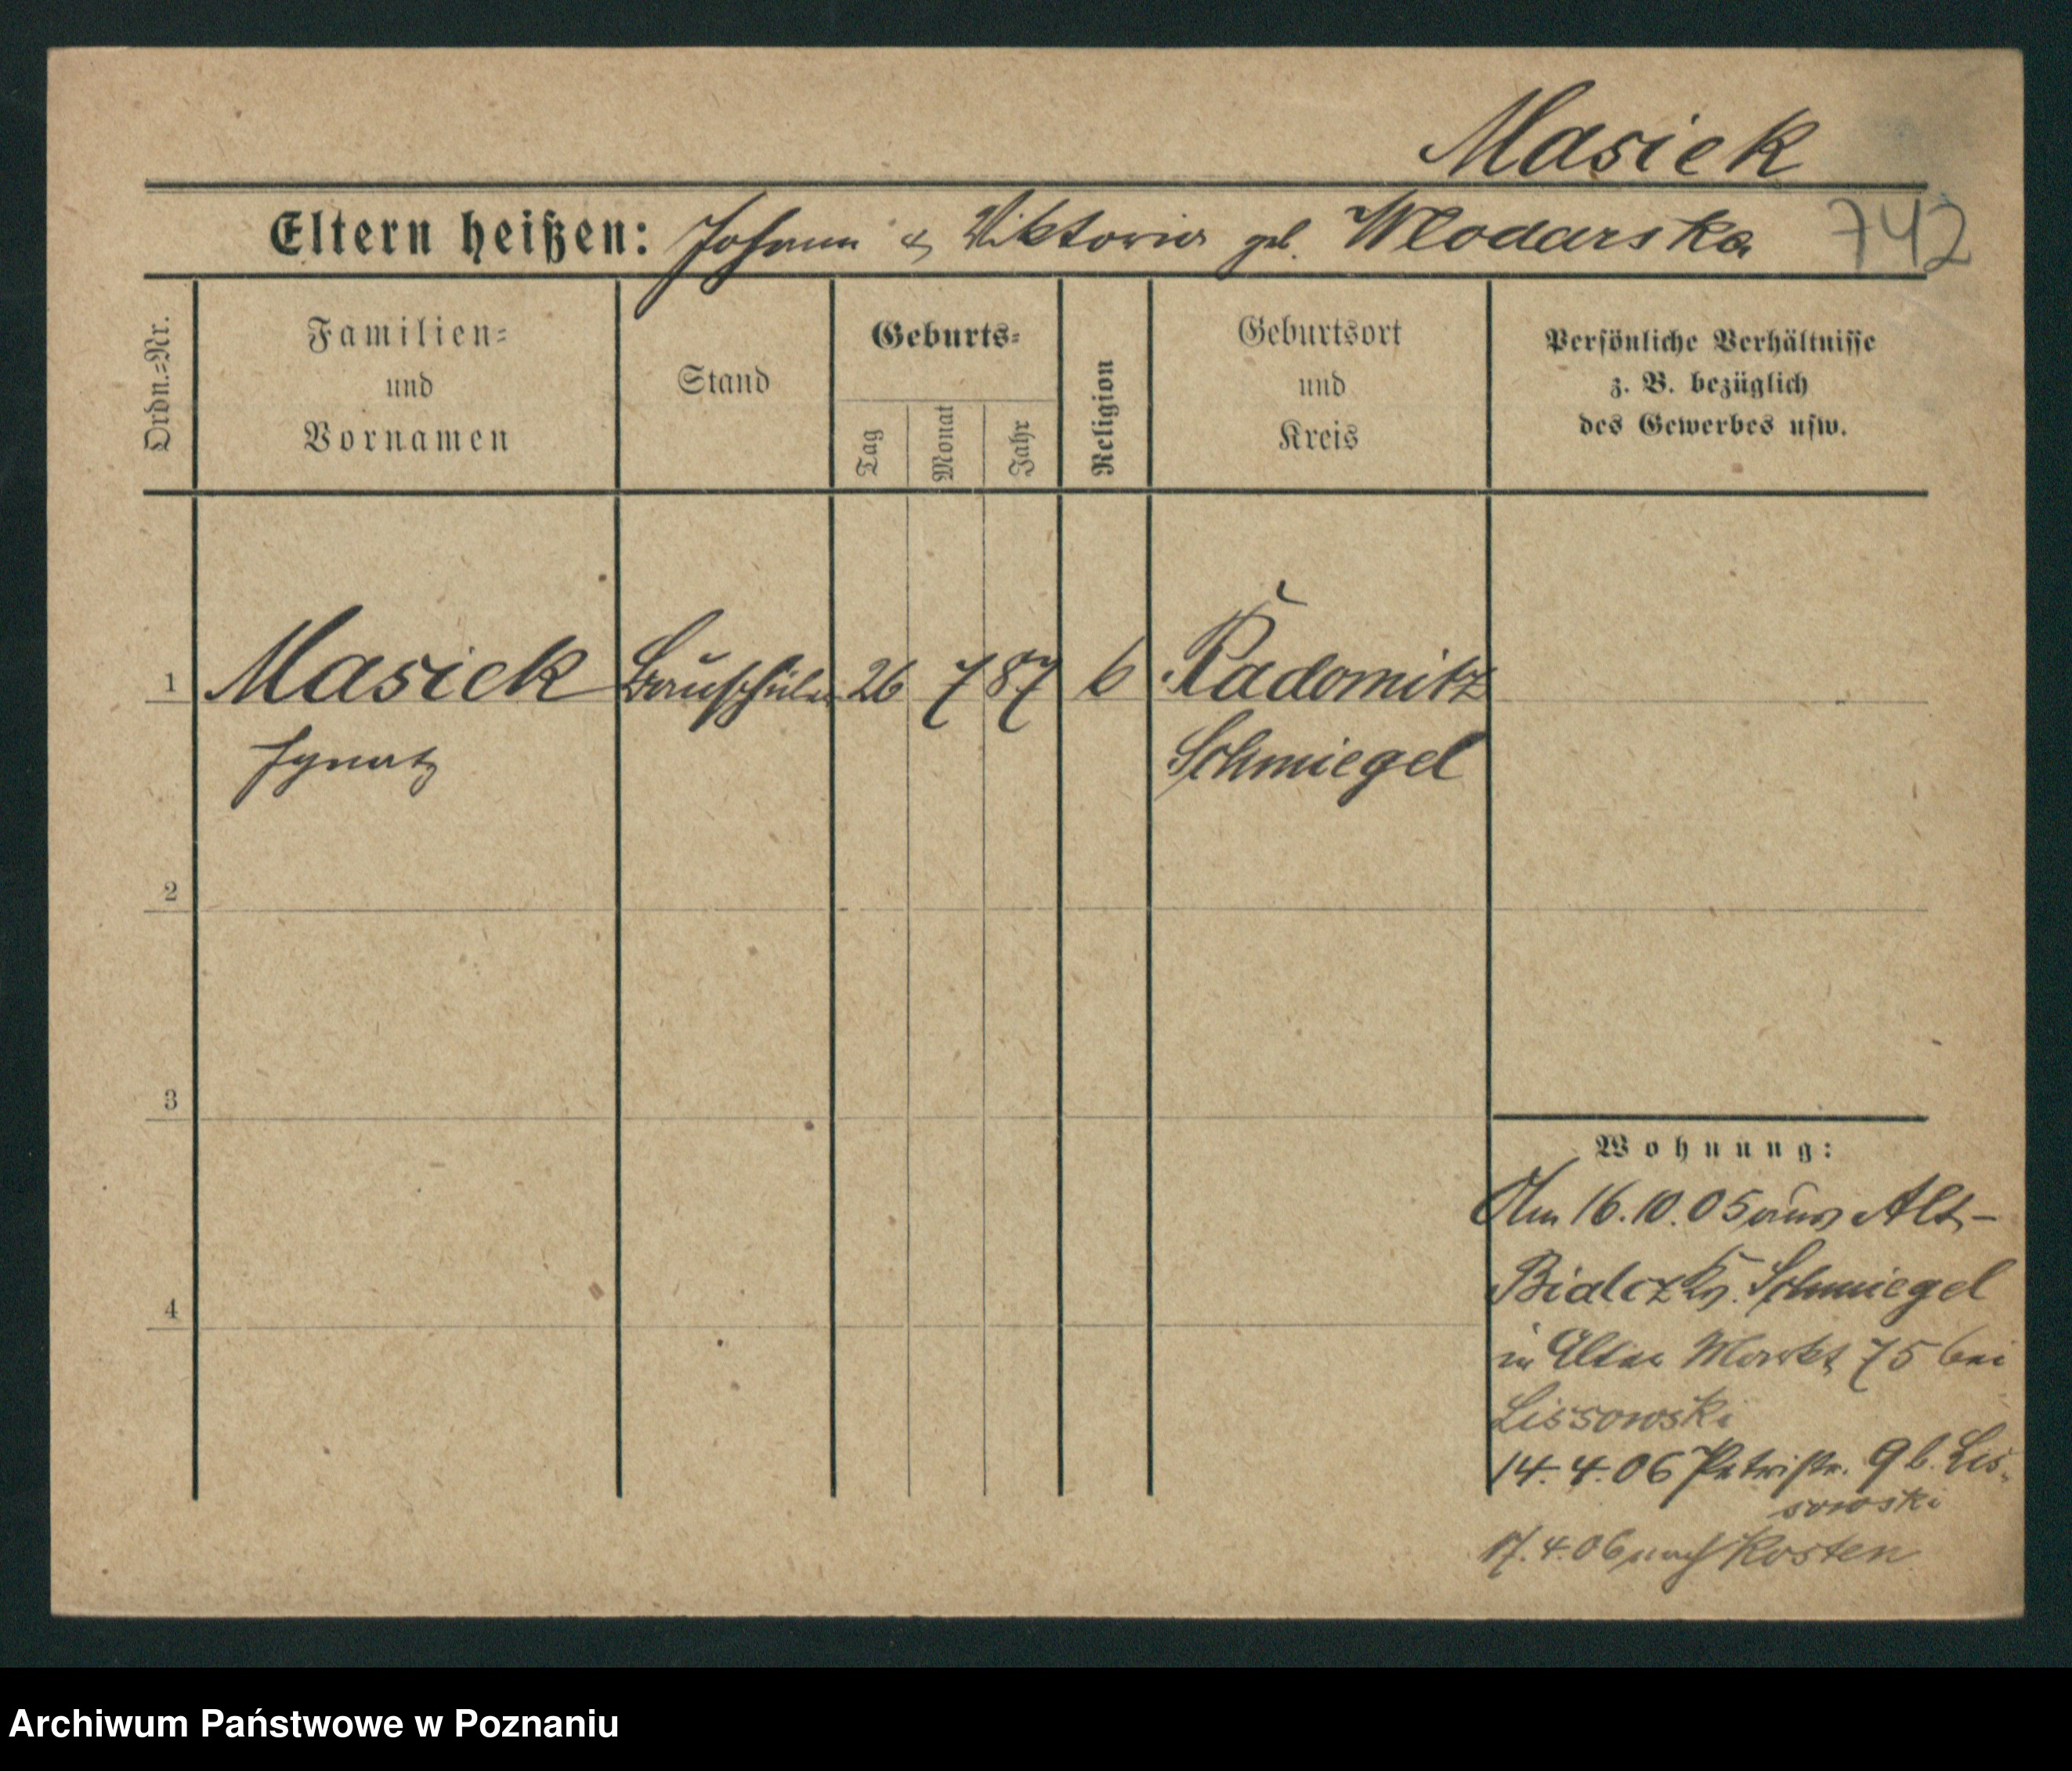 Masiek
Eltern heißen: Johann & Viktoria geb. Wlodarska
742
Ordn.=Nr.
Familien=
und
Vornamen
Stand
Geburts=
Tag
Monat
Jahr
Religion
Geburtsort
und
Kreis
Persönliche Verhältnisse
z. B. bezüglich
des Gewerbes usw.
1 Masiek Bauschüler 26 7 87 Radomitz
Ignatz Schmiegel
2
3
4
Wohnung:
Am 16.10.05 aus Alt-
Bialcz Kr. Schmiegel
in Alter Markt 75 bei
Lissowski
14.4.06 Petristr. 9 b. Lis-
sowski
17.4.06 nach Kosten
Archiwum Państwowe w Poznaniu